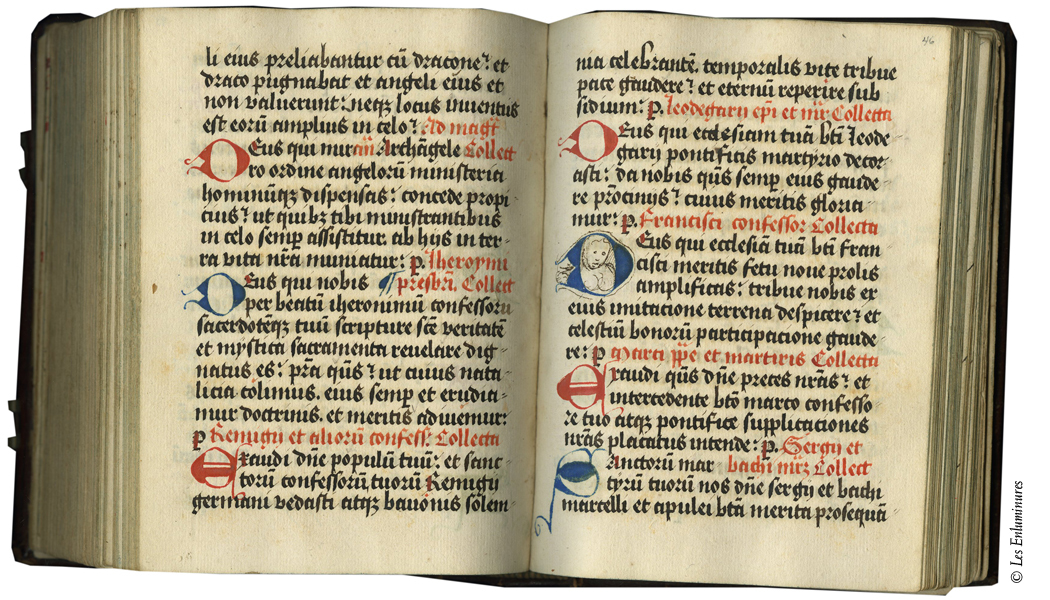 li eius preliabantur cū dracone: et
draco pugnabat et angeli eius et
non valuerunt: neqꝫ locus inuentus
est eorū amplius in celo: Ad magt̄
Deus qui miram̄ Archāgele Collect
ro ordine angelorū ministeria
hominūqꝫ dispensas: concede propi
cius: ut quibꝫ tibi ministrantibus
in celo semp assistitur. ab hijs in ter-
ra vita nr̄a muniatur: p. Iheronimi
Deus qui nobis ¶ presbri. Collect
per beatū iheronimū confessorū
sacerdotēqꝫ tuū scripture scē veritatē
et mystica sacramenta reuelare dig-
natus es: pr̄a qūs: ut cuius nata-
licia colimus. eius semper et erudia-
mur doctrinis. et meritis adiuuemur:
p Remigij et aliorū confess: Collecta
Exaudi dn̄e populū tuū: et sanc-
torū confessorū tuorū Remigij
germani vedasti atqꝫ bauonis solem-
46
nia celebrantē. temporalis vite tribue
pace gaudere: et eternū reperire sub
sidium: p. leodegarij epi et mr̄ Collecta
Deus qui ecclesiam tuā bti leode-
garij pontificis martyrio decor-
asti: da nobis qūs semp eius gaude-
re p̄ocinijs: cuius meritis gloria
mur: p. Francisci confessor Collecta
Deus qui ecclesiā tuā bti fran
cisci meritis fetu noue prolis
amplificas: tribue nobis ex
eius imitacione terrena despicere: et
celestiū bonorū participacione gaude-
re: p Marci ppe et martiris Collecta
Exaudi qūs dn̄e preces nr̄as: et
intercedente bto marco confesso-
re tuo atqꝫ pontifice supplicaciones
nr̄as placatus intende: p. Sergij et
Sanctorū mar bachi mrꝫ Collect
tyrū tuorū nos dn̄e sergij et bachi
marcelli et apulei btā merita prosequā
© Les Enluminures